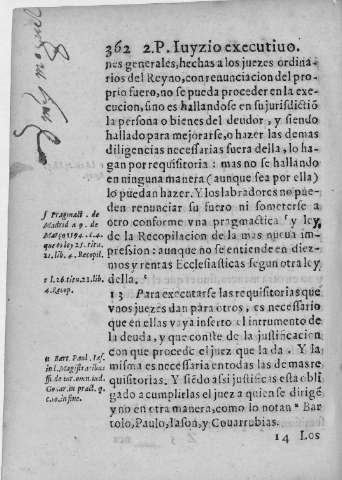 362 2.P. Iuyzio executiuo.
nes generales, hechas a los juezes ordina-
rios del Reyno, con renunciacion del pro-
prio fuero, no se pueda proceder en la exe-
cucion, sino es hallandose en su jurisdictiõ
la persona o bienes del deudor, y siendo
hallado para mejorarse, o hazer las demas
diligencias necessarias fuera della, lo ha-
gan por requisitoria: mas no se hallando
en ninguna manera (aunque sea por ella)
lo puedan hazer. Y los labradores no pue-
den renunciar su fuero ni someterse a
otro conforme vna pragmactica ſ y ley
de la Recopilacion de la mas nueua im-
pression: aunque no se entiende en diez-
mos y rentas Ecclesiasticas segun otra ley
della. t
13 Para executarse las requisitorias que
vnos juezes dan para otros, es necessario
que en ellas vaya inserto el intrumento de
la deuda, y que conste de la justificacion
con que procede el juez que la da. Y la
misma es necessaria en todas las demas re-
quisitorias. Y siẽdo assi justificas està obli-
gado a cumplirlas el juez a quien se dirigẽ
y no en otra manera, como lo notan u Bar
tolo, Paulo, Iason, y Couarrubias.
14 Los
ſ Pragmact. de
Madrid a 9. de
Março 1594. c.4.
que es ley 25. titu.
21. lib. 4. Recopil.
t l. 26. titu. 21. lib.
4. Recop.
u Bart. Paul. Ias.
in l. Magistratibus
ff. de iur. omn. iud.
Couar. in pract. q.
c. 10. in fine.